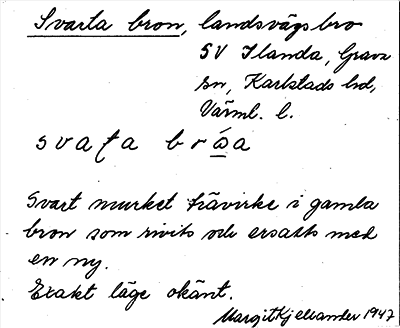 Svarta bron, landsvägsbro
SV Ilanda, Grava
sn, Karlstads hd,
Värml. l.
svaʈa brώ̲a
Svart murket trävirke i gamla
bron som rivits och ersatts med
en ny.
Exakt läge okänt.
Margit Kjellander 1947